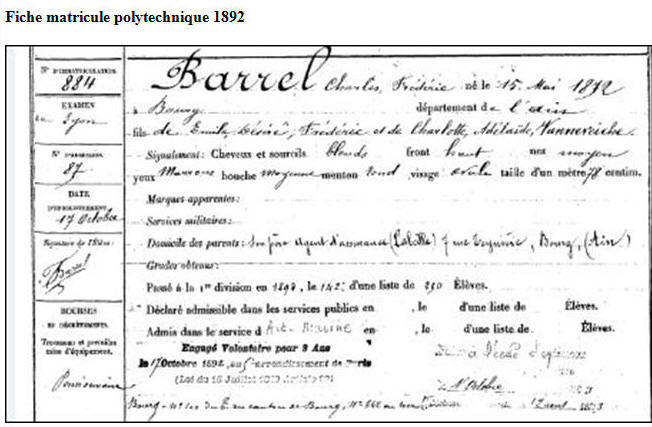 Fiche matricule polytechnique 1892
N° D'IMMATRICULATION
884
EXAMEN
Lyon
87
DATE
17 Octobre
Signature de l'Élève:
Barrel
BOURSES
Trousseau et première
mise d'équipement.
Pensionnaire
Barrel Charles, Frédéric né le 15 Mai 1872
à Bourg département de l'Ain
fils de Emile, Désiré, Frédéric et de Charlotte, Adélaïde,
Signalement: Cheveux et sourcils blonds front haut nez moyen
yeux Marrons bouche moyenne menton rond visage ovale taille d'un mètre 78 centim.
Marques apparentes:
Services militaires:
Domicile des parents: Son père Agent d'assurance rue Bourg, (Ain)
Grades obtenus:
Passé à la 1re division en 1893, le 142e d'une liste de 230 Élèves.
Déclaré admissible dans les services publics en , le d'une liste de Élèves.
Admis dans le service d' Art. Marine en , le d'une liste de Élèves.
Engagé Volontaire pour 3 Ans
le 17 Octobre 1892, au 5e arrondissement de Paris
(Loi du 15 Juillet 1889
à l'école
Octobre
Bourg canton de Bourg, N°